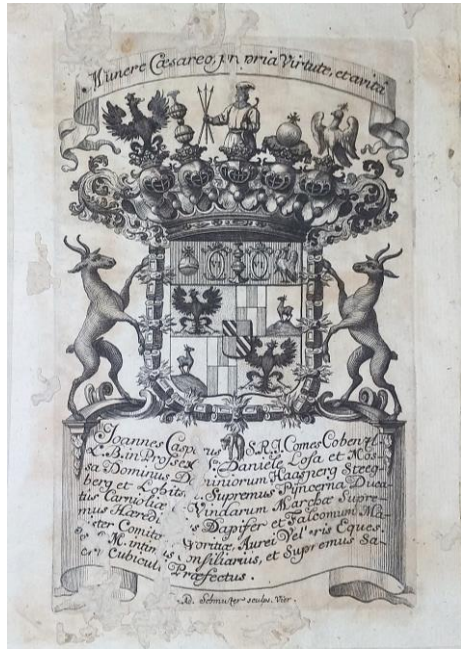 Munere Cæsareo, propria Virtute, et avita
Joannes Casp rus S.R.I. Comes Cobenzl
L. B. in Prossek S. Daniele, Losa et Mos-
sa Dominus D iniorum Haasperg Steeg-
berg et Lobits . Supremus Pincerna Duca
tus Carnioliæ Vindarum Marchæ Supre-
mus Hæredi s Dapifer et Falconum Ma
ister Comit Goritiæ, Aurei Vel ris Eques.
M. intim s onsiliarius, et Supremus Sa-
cri Cubicul Præfectus.
Ad. Schmuzer sculps. Vier.